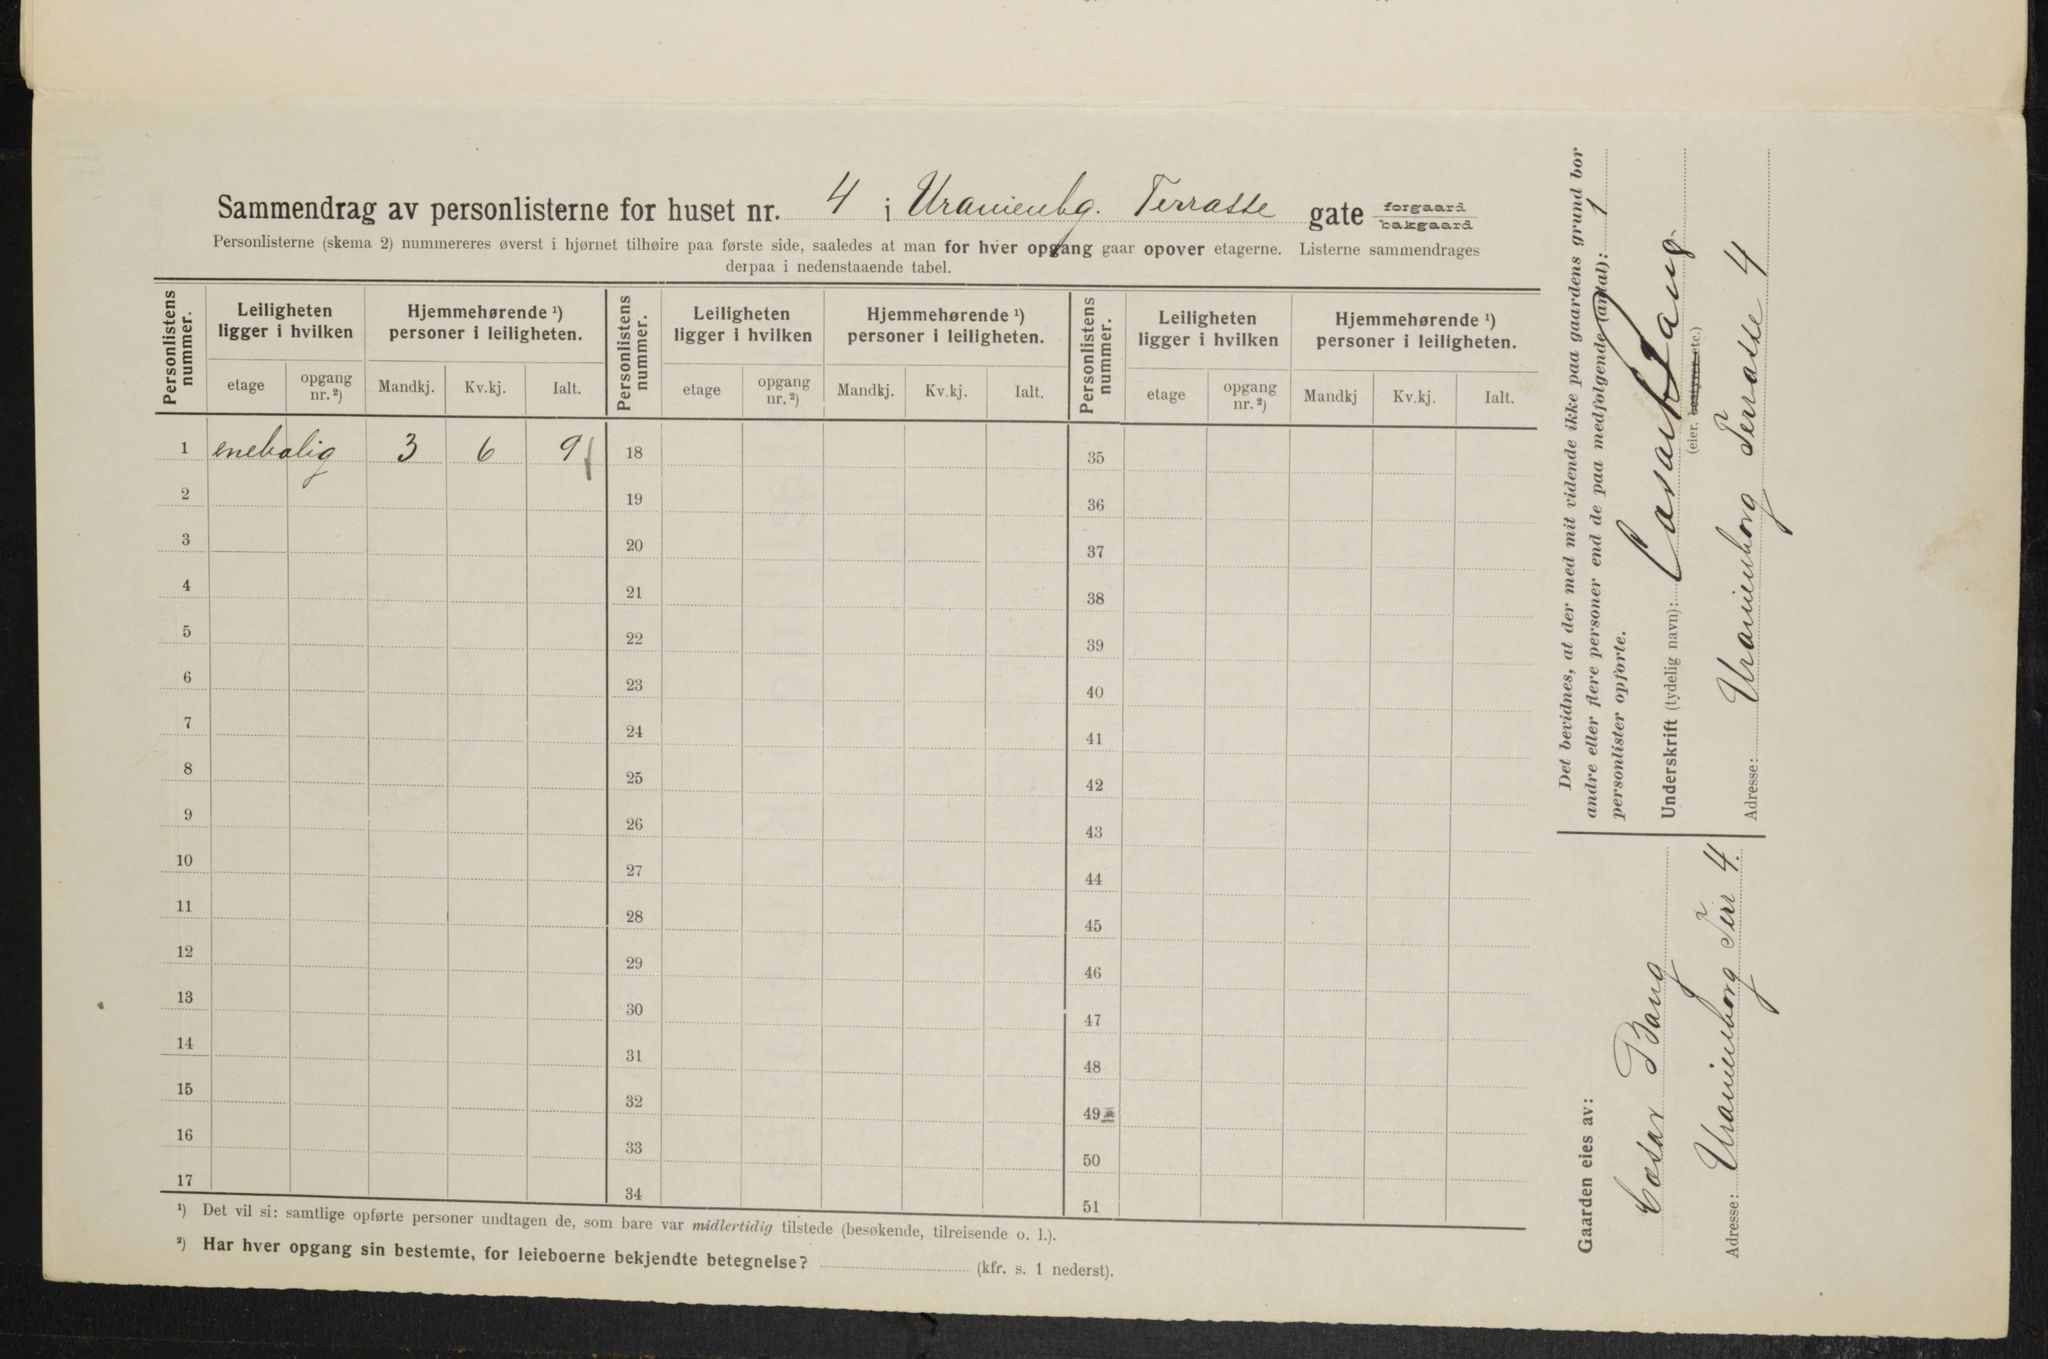 Sammendrag av personlisterne for huset nr. 4 i Uranienbg. Terrasse gate forgaard bakgaard
Personlisterne (skema 2) nummereres øverst i hjørnet tilhøire paa første side, saaledes at man for hver opgang gaar opover etagerne. Listerne sammendrages
derpaa i nedenstaaende tabel.
Personlistens nummer. Leiligheten ligger i hvilken Hjemmehørende ¹) personer i leiligheten. Personlistens nummer. Leiligheten ligger i hvilken Hjemmehørende ¹) personer i leiligheten. Personlistens nummer. Leiligheten ligger i hvilken Hjemmehørende ¹) personer i leiligheten.
etage opgang nr. ²) Mandkj. Kv.kj. Ialt. etage opgang nr. ²) Mandkj. Kv.kj. Ialt. etage opgang nr. ²) Mandkj Kv.kj. Ialt.
1 enebolig 3 6 9 18 35
2 19 36
3 20 37
4 21 38
5 22 39
6 23 40
7 24 41
8 25 42
9 26 43
10 27 44
11 28 45
12 29 46
13 30 47
14 31 48
15 32 49
16 33 50
17 34 51
¹) Det vil si: samtlige opførte personer undtagen de, som bare var midlertidig tilstede (besøkende, tilreisende o. l.).
²) Har hver opgang sin bestemte, for leieboerne bekjendte betegnelse? (kfr. s. 1 nederst).
Det bevidnes, at der med mit vidende ikke paa gaardens grund bor
andre eller flere personer end de paa medfølgende (antal): 1
personlister opførte.
Underskrift (tydelig navn): Cæsar Bang
(eier, bestyrer etc.)
Adresse: Uranienborg Terrasse 4
Gaarden eies av:
Cæsar Bang
Adresse: Uranienborg Terr 4.